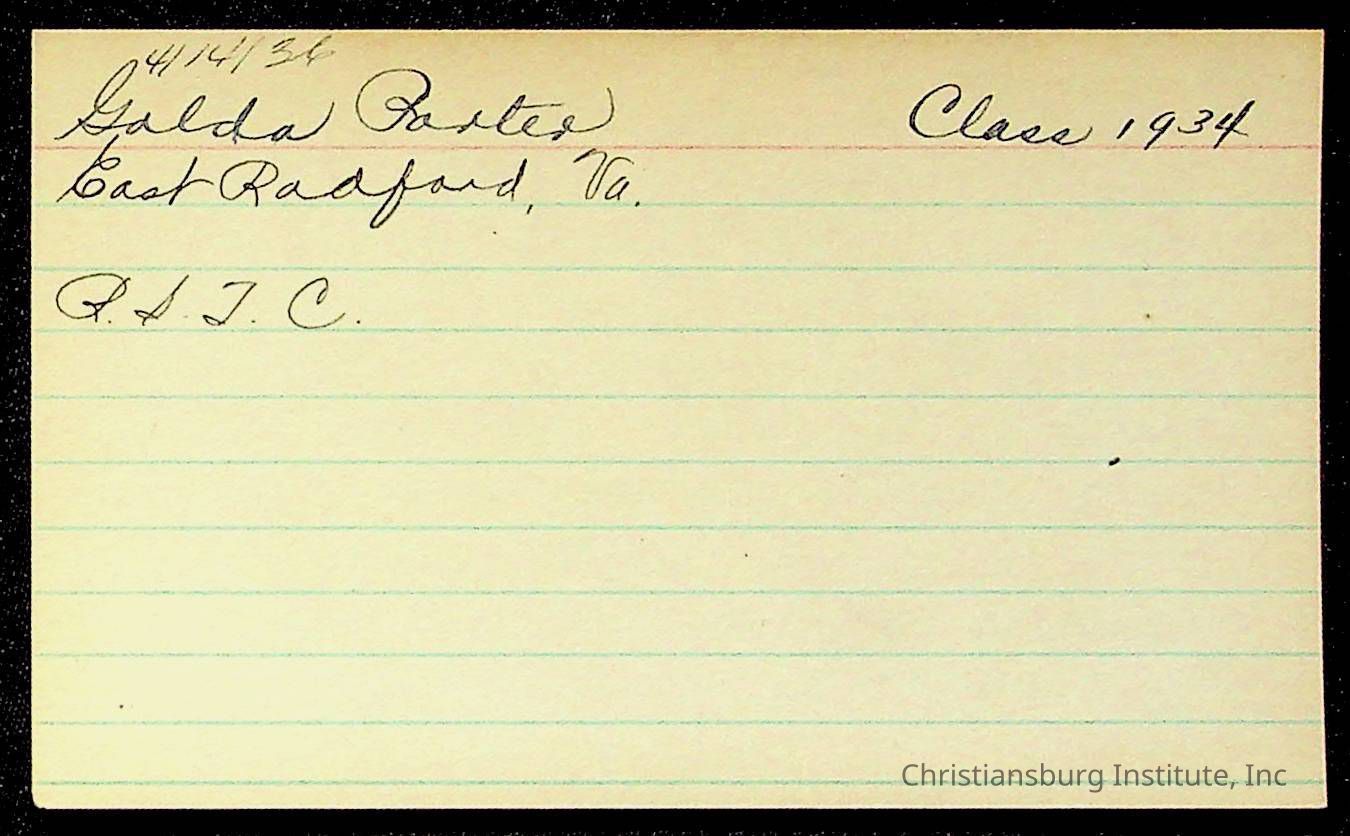 4/14/36
Golda Porter Class 1934
East Radford, Va.
R. S. T. C.
Christiansburg Institute, Inc